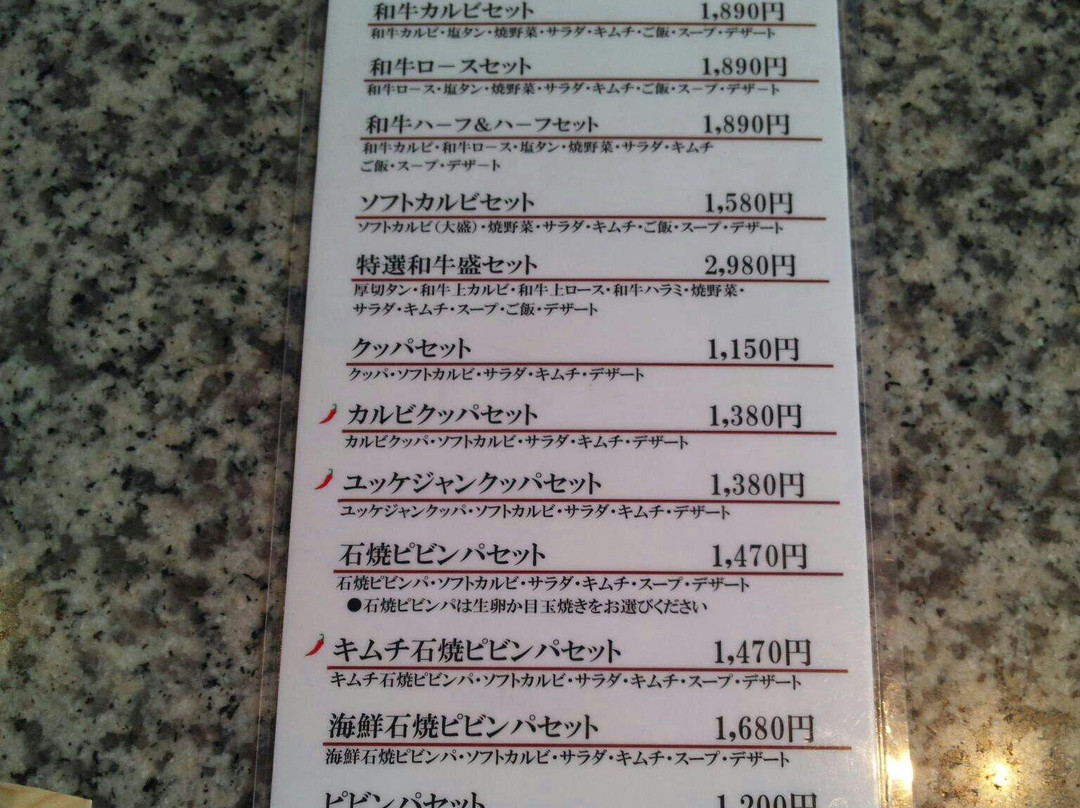 和牛カルビセット 1,890円
和牛カルビ・塩タン・焼野菜・サラダ・キムチ・ご飯・スープ・デザート
和牛ロースセット 1,890円
和牛ロース・塩タン・焼野菜・サラダ・キムチ・ご飯・スープ・デザート
和牛ハーフ&ハーフセット 1,890円
和牛カルビ・和牛ロース・塩タン・焼野菜・サラダ・キムチ
ご飯・スープ・デザート
ソフトカルビセット 1,580円
ソフトカルビ(大盛)・焼野菜・サラダ・キムチ・ご飯・スープ・デザート
特選和牛盛セット 2,980円
厚切タン・和牛上カルビ・和牛上ロース・和牛ハラミ・焼野菜・
サラダ・キムチ・スープ・ご飯・デザート
クッパセット 1,150円
クッパ・ソフトカルビ・サラダ・キムチ・デザート
カルビクッパセット 1,380円
カルビクッパ・ソフトカルビ・サラダ・キムチ・デザート
ユッケジャンクッパセット 1,380円
ユッケジャンクッパ・ソフトカルビ・サラダ・キムチ・デザート
石焼ピビンパセット 1,470円
石焼ピビンパ・ソフトカルビ・サラダ・キムチ・スープ・デザート
●石焼ピビンパは生卵か目玉焼きをお選びください
キムチ石焼ピビンパセット 1,470円
キムチ石焼ピビンパ・ソフトカルビ・サラダ・キムチ・スープ・デザート
海鮮石焼ピビンパセット 1,680円
海鮮石焼ピビンパ・ソフトカルビ・サラダ・キムチ・スープ・デザート
ピビンパセット 1,200円